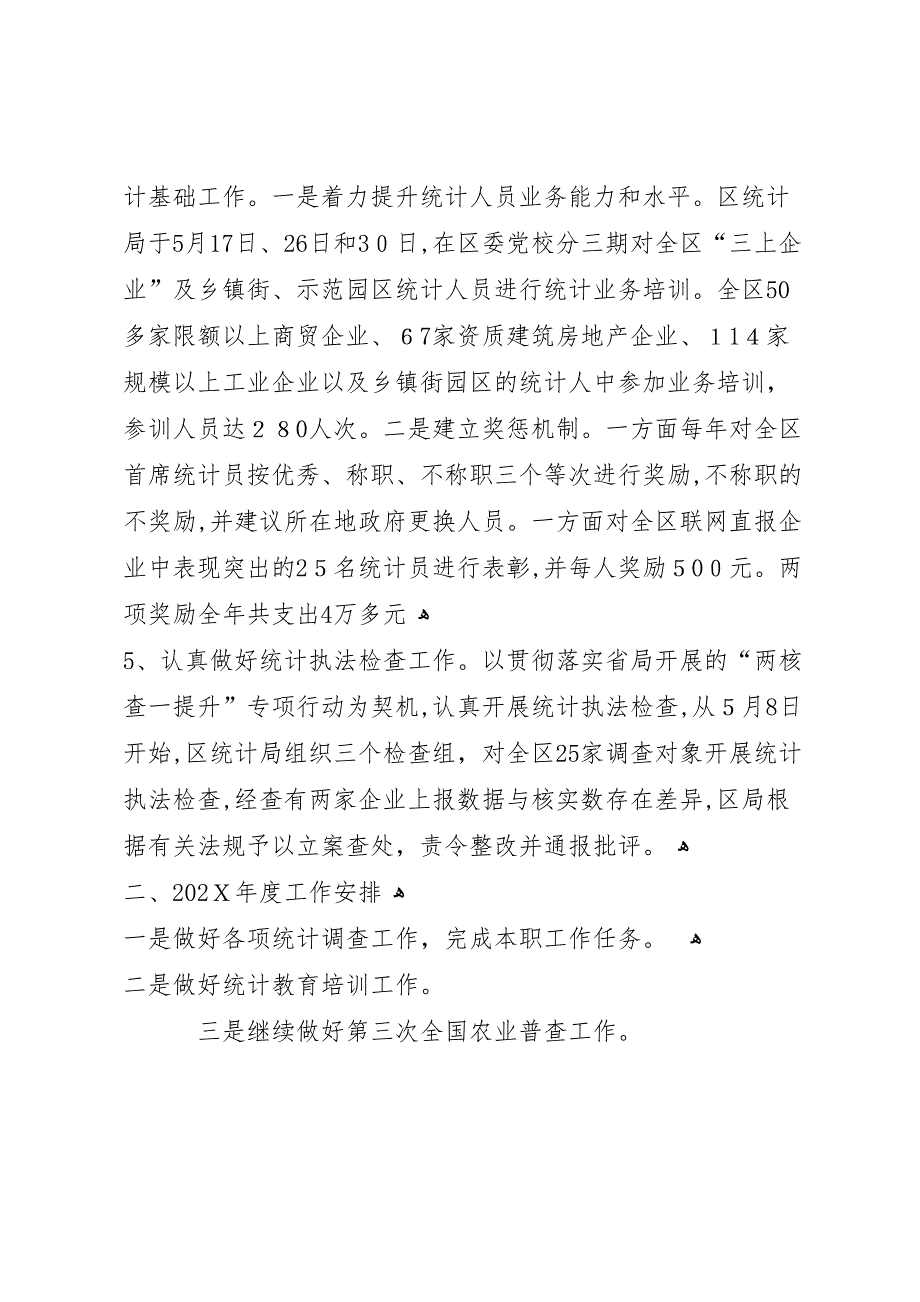 计基础工作。一是着力提升统计人员业务能力和水平。区统计
局于5月17日、26日和30日,在区委党校分三期对全区“三上企
业”及乡镇街、示范园区统计人员进行统计业务培训。全区50
多家限额以上商贸企业、67家资质建筑房地产企业、114家
规模以上工业企业以及乡镇街园区的统计人中参加业务培训，
参训人员达280人次。二是建立奖惩机制。一方面每年对全区
首席统计员按优秀、称职、不称职三个等次进行奖励,不称职的
不奖励,并建议所在地政府更换人员。一方面对全区联网直报企
业中表现突出的25名统计员进行表彰,并每人奖励500元。两
项奖励全年共支出4万多元 ﻬ
5、认真做好统计执法检查工作。以贯彻落实省局开展的“两核
查一提升”专项行动为契机,认真开展统计执法检查,从5月8日
开始,区统计局组织三个检查组，对全区25家调查对象开展统计
执法检查,经查有两家企业上报数据与核实数存在差异,区局根
据有关法规予以立案查处，责令整改并通报批评。 ﻬ
二、202X年度工作安排 ﻬ
一是做好各项统计调查工作，完成本职工作任务。 ﻬ
二是做好统计教育培训工作。
三是继续做好第三次全国农业普查工作。